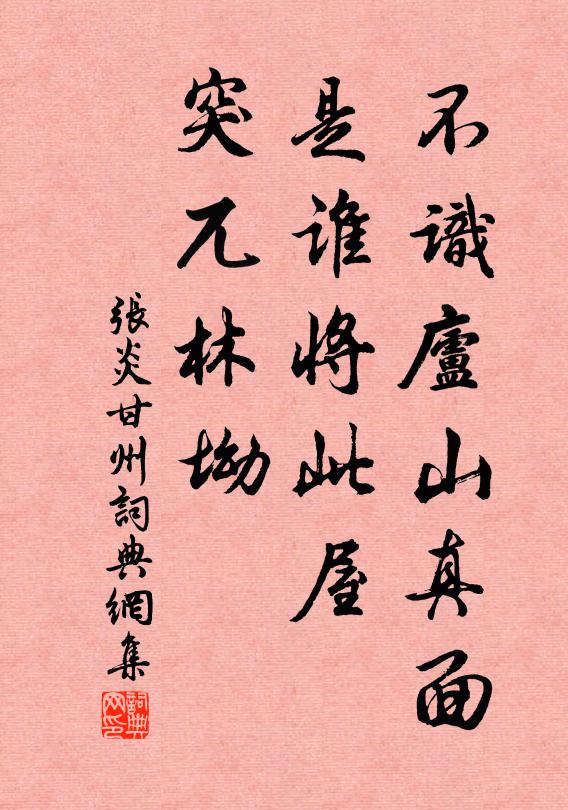 不識廬山真面
是誰將此屋
突兀林坳
張炎甘州詞典網集
詞典网印